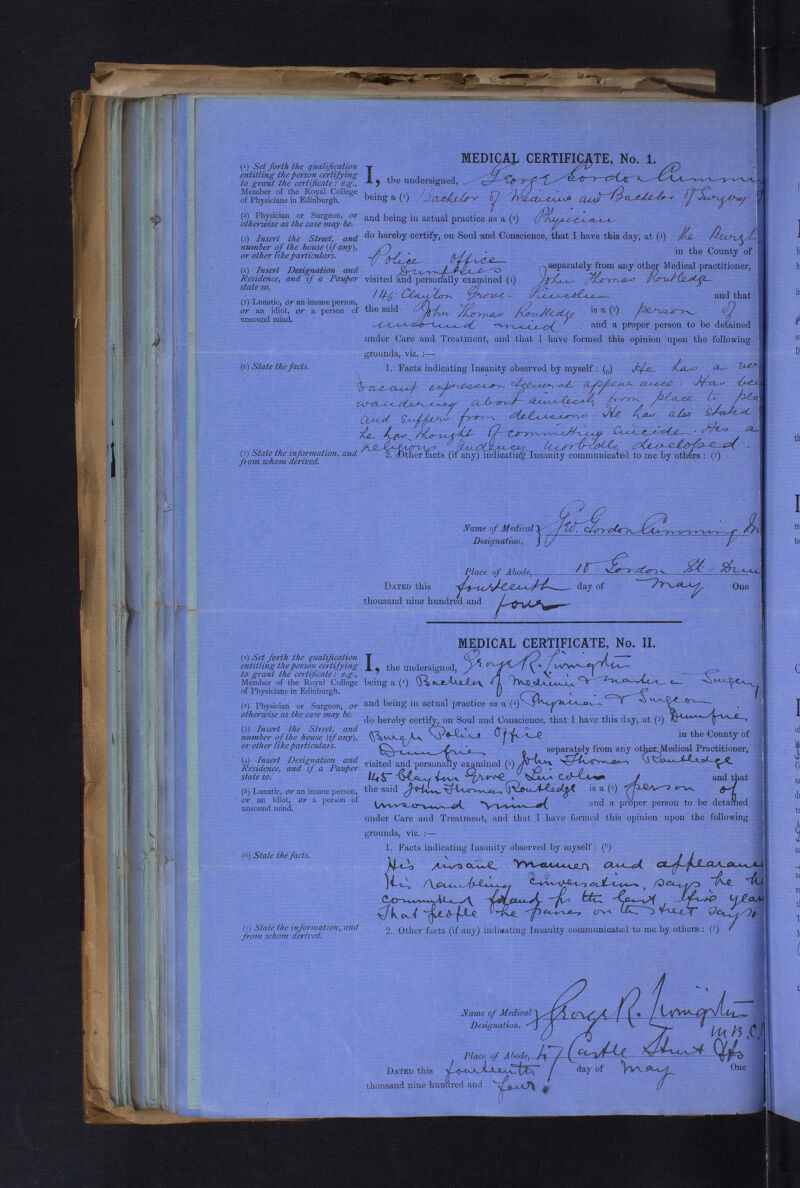 MEDICAL CERTIFICATE, No. 1.
(1) Set forth the qualification
entitling the person certifying
to grant the certificate: e.g.,
Member of the Royal College
of Physicians in Edinburgh.
(2) Physician or Surgeon, or
otherwise as the case may be.
(3) Insert the Street, and
number of the house (if any),
or other like particulars.
(4) Insert Designation and
Residence, and if a Pauper
state so.
(5) Lunatic, or an insane person,
or an idiot, or a person of
unsound mind.
(6) State the facts.
(7) State the information, and
from whom derived.
I, the undersigned, George Gordon Cummin
being a (1) Bachelor of Medicine and Bachelor of Surgery
and being in actual practice as a (2) Physician
do hereby certify, on Soul and Conscience, that I have this day, at (3) the Burgh
Police Office in the County of
Dumfries separately from any other Medical practitioner,
visited and personally examined (4) John Thomas Routledge
145 Clayton Grove. Lincoln and that
the said John Thomas Routledge is a (5) person of
unsound mind and a proper person to be detained
under Care and Treatment, and that I have formed this opinion upon the following
grounds, viz. :—
1. Facts indicating Insanity observed by myself: (6) He has a ver
vacant expression & general appearance. Has bee
wandering about aimlessly from place to pla
and suffers from delusions. He has also stated
he has thought of committing suicide. Has a
religious tendency morbidly developed.
2. Other facts (if any) indicating Insanity communicated to me by others: (7)
Name of Medical } Geo. Gordon Cumming M
Designation,
Place of Abode, 10 Gordon St. Dum
DATED this fourteenth day of May One
thousand nine hundred and four
MEDICAL CERTIFICATE, No. II.
(1) Set forth the qualification
entitling the person certifying
to grant the certificate: e.g.,
Member of the Royal College
of Physicians in Edinburgh.
(2) Physician or Surgeon, or
otherwise as the case may be.
(3) Insert the Street, and
number of the house (if any),
or other like particulars.
(4) Insert Designation and
Residence, and if a Pauper
state so.
(5) Lunatic, or an insane person,
or an idiot, or a person of
unsound mind.
(6) State the facts.
(7) State the information, and
from whom derived.
I, the undersigned, George R. Livingston
being a (1) Bachelor of Medicine & Master in Surgery
and being in actual practice as a (2) Physician & Surgeon
do hereby certify, on Soul and Conscience, that I have this day, at (3) Dumfries
Burgh Police Office in the County of
Dumfries separately from any other Medical Practitioner,
visited and personally examined (4) John Thomas Routledge
145 Clayton Grove Lincoln and that
the said John Thomas Routledge is a (5) person of
unsound mind and a proper person to be detained
under Care and Treatment, and that I have formed this opinion upon the following
grounds, viz. :—
1. Facts indicating Insanity observed by myself: (6)
His insane manner and appearance
His rambling conversation, says he h
committed fraud for the last five year
That people he passes on the street say so
2. Other facts (if any) indicating Insanity communicated to me by others: (7)
Name of Medical } George R. Livingston
Designation. M.B.C.
Place of Abode, 47 Castle Street Dfs
DATED this fourteenth day of May One
thousand nine hundred and four.